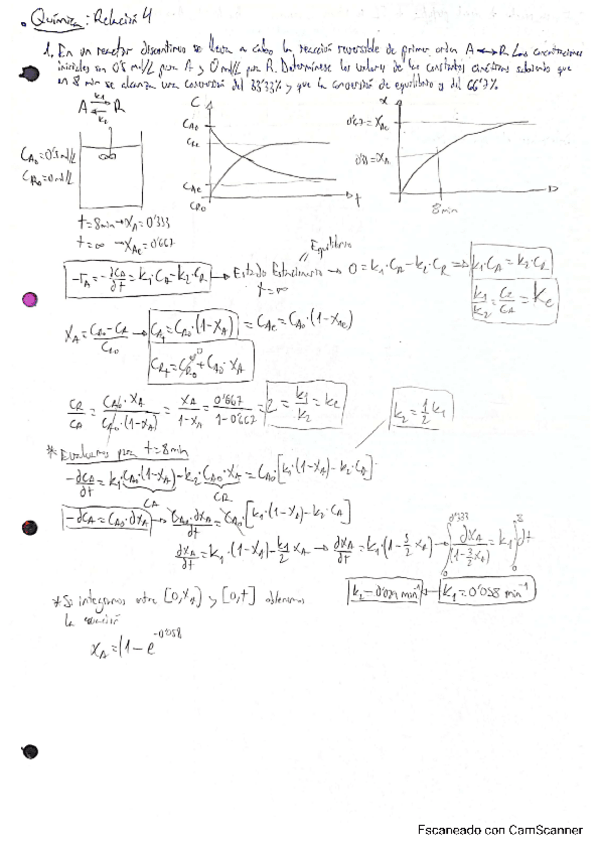 • Química: Relación 4
1. En un reactor discontinuo se lleva a cabo la reacción reversible de primer orden A ⟷ R. Las concentraciones
iniciales son 0'5 mol/L para A y 0 mol/L para R. Determínese los valores de las constantes cinéticas sabiendo que
en 8 min se alcanza una conversión del 33'33% y que la conversión de equilibrio es del 66'7%.
A ⇄ R
k1
k2
CA0=0'5 mol/L
CR0=0 mol/L
t=8min→XA=0'333
t=∞ →XAe=0'667
C
CA0
CRe
CAe
CR0
t
X
0'667=XAe
=XA
8min
Equilibrio
-rA=-dCA/dt=k1·CA-k2·CR → Estado Estacionario → 0=k1·CA-k2·CR ⇒ k1·CA=k2·CR
t=∞
k1/k2=CR/CA=Ke
XA=(CA0-CA)/CA0 → CA=CA0·(1-XA) = CAe=CA0·(1-XAe)
CR=CR0+CA0·XA
CR/CA=CA0·XA/CA0·(1-XA)=XA/(1-XA)=0'667/(1-0'667)=2=k1/k2=Ke
k2=1/2 k1
* Evaluamos para t=8min
-dCA/dt=k1·CA0·(1-XA)-k2·CA0·XA=CA0·[k1·(1-XA)-k2·CA]
CA
CR
-dCA=CA0·dXA → CA0·dXA/dt=CA0·[k1·(1-XA)-k2·CA]
dXA/dt=k1·(1-XA)-k1/2 XA → dXA/dt=k1·(1-3/2 XA) → ∫0^0'333 dXA/(1-3/2 XA)=k1∫0^8 dt
* Si integramos entre [0,XA] y [0,t] obtenemos
k2=0'029 min⁻¹ ← k1=0'058 min⁻¹
la ecuación
XA=(1-e^-0'058
Escaneado con CamScanner